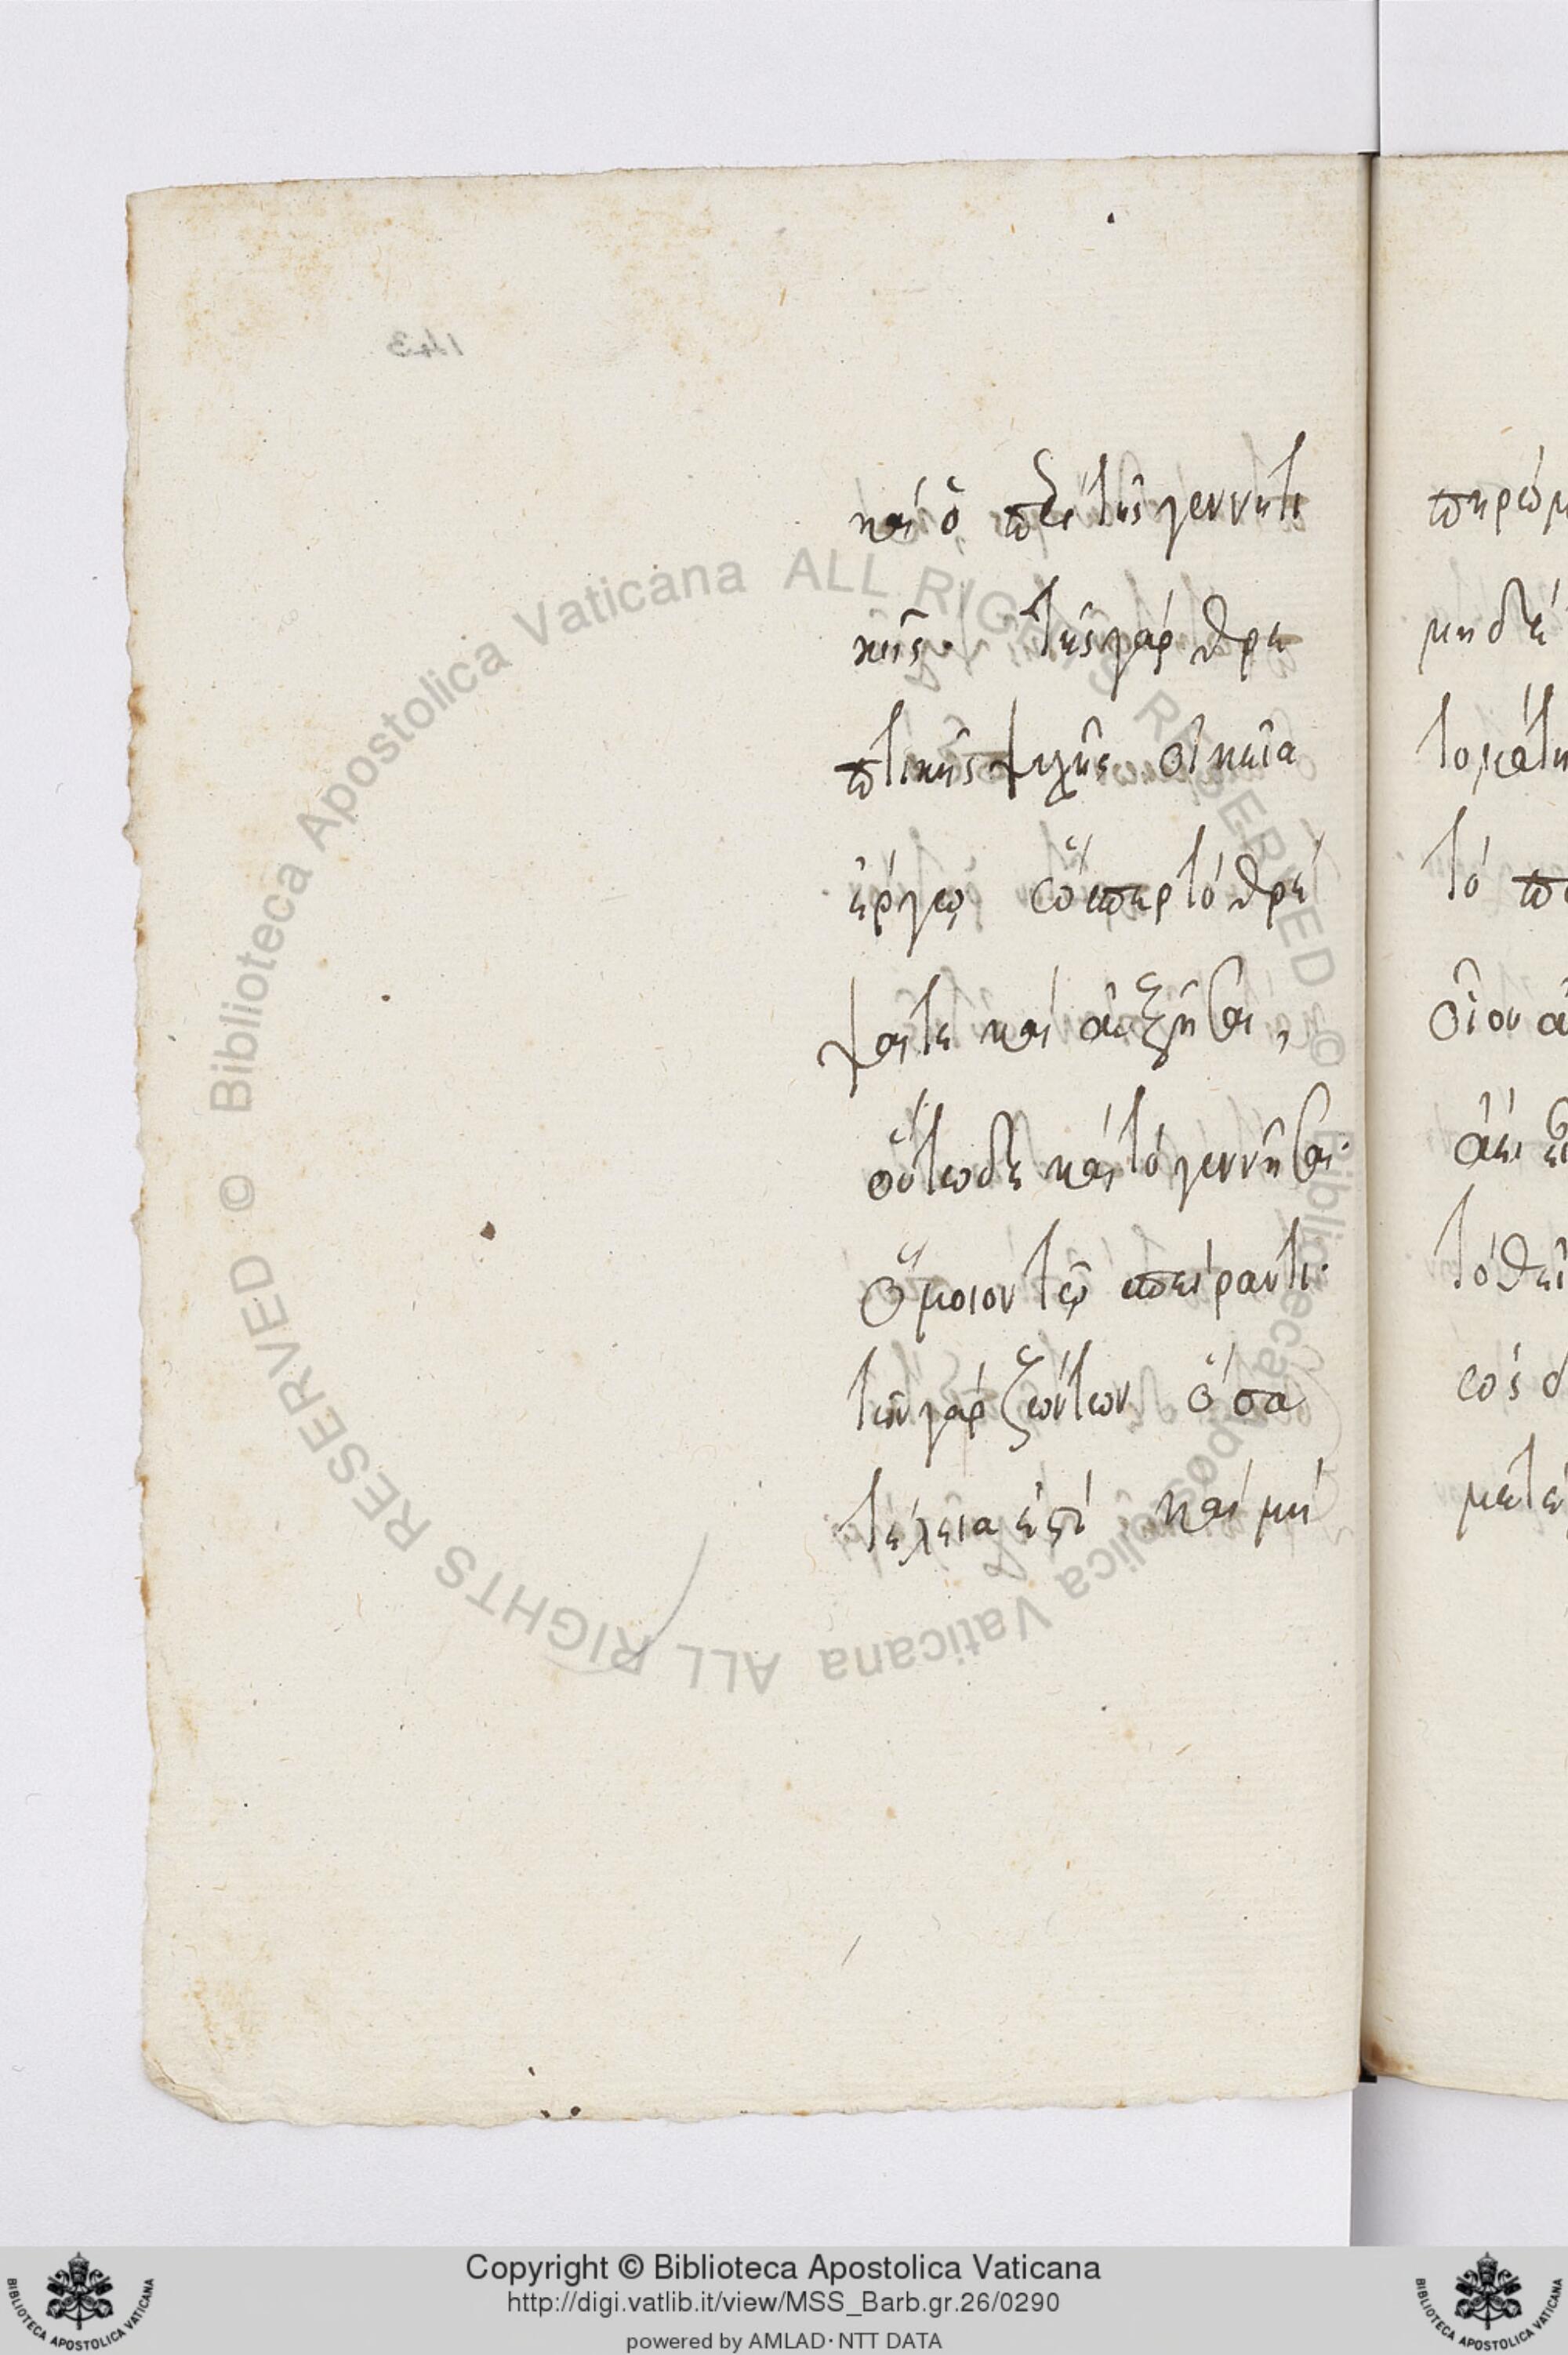 143
καὶ ὁ περὶ τῆς γεννητι
κῆς. τῆς γὰρ θρε
πτικῆς ψυχῆς οἰκεῖα
ἔργα ὥσπερ τὸ θρέ
ψαι τε καὶ αὐξῆσαι,
οὕτω δὲ καὶ τὸ γεννῆσαι.
Ὅμοιον τῷ
τῶν γὰρ ζώντων ὅσα
τέλεια ἐστὶ καὶ μὴ
πηρωμ
μηδὲ
τομάτη
τὸ
οἷον
ἀεὶ
τὸ θεῖ
μετέ
© Biblioteca Apostolica Vaticana ALL RIGHTS RESERVED © Biblioteca Apostolica Vaticana ALL RIGHTS RESERVED
Copyright © Biblioteca Apostolica Vaticana
http://digi.vatlib.it/view/MSS_Barb.gr.26/0290
powered by AMLAD·NTT DATA
BIBLIOTECA APOSTOLICA VATICANA
BIBLIOTECA APOSTOLICA VATICANA